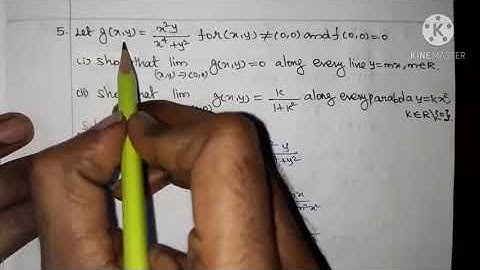 5. Let g(x,y) = x²y / x⁴+y² for (x,y) ≠ (0,0) and f(0,0)=0
(i) show that lim (x,y)→(0,0) g(x,y)=0 along every line y=mx, m∈R.
(ii) show that lim (x,y)→(0,0) g(x,y) = k / 1+k² along every parabola y=kx²,
k∈R\{0}.
Made with KINEMASTER